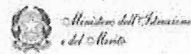 Ministero dell'Istruzione
e del Merito